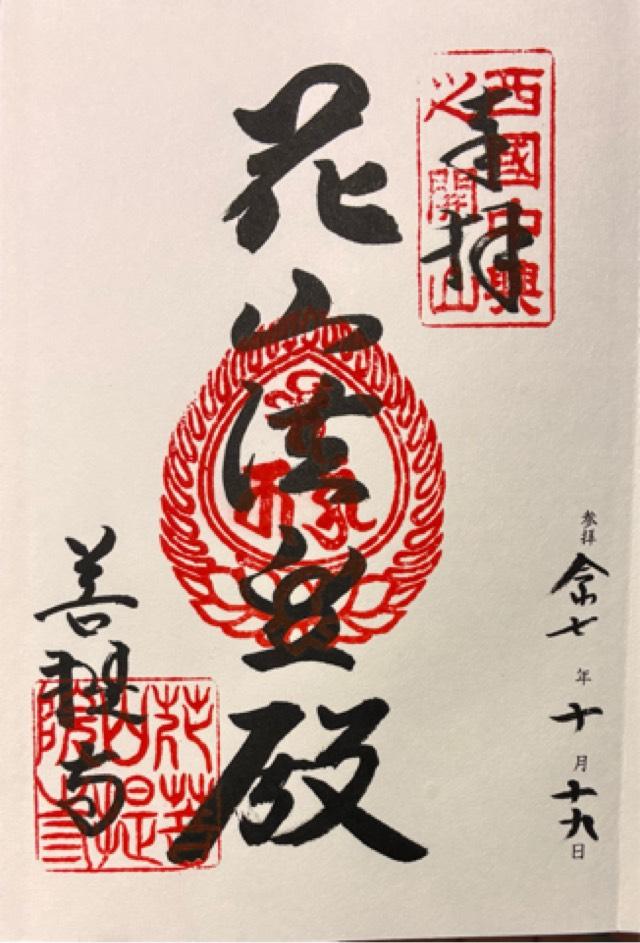 奉拝
西國中興
之開山
花山法皇殿
菩提寺
花山院
菩提寺
参拝 令和七年十月十九日